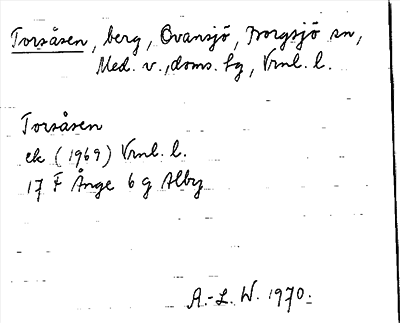 Torsåsen, berg, Ovansjö, Borgsjö sn,
Med. v., doms. fg, Vrnl. l.
Torsåsen
ek (1969) Vrnl. l.
17 F Ånge 6 g Alby
A.-L. W. 1970.